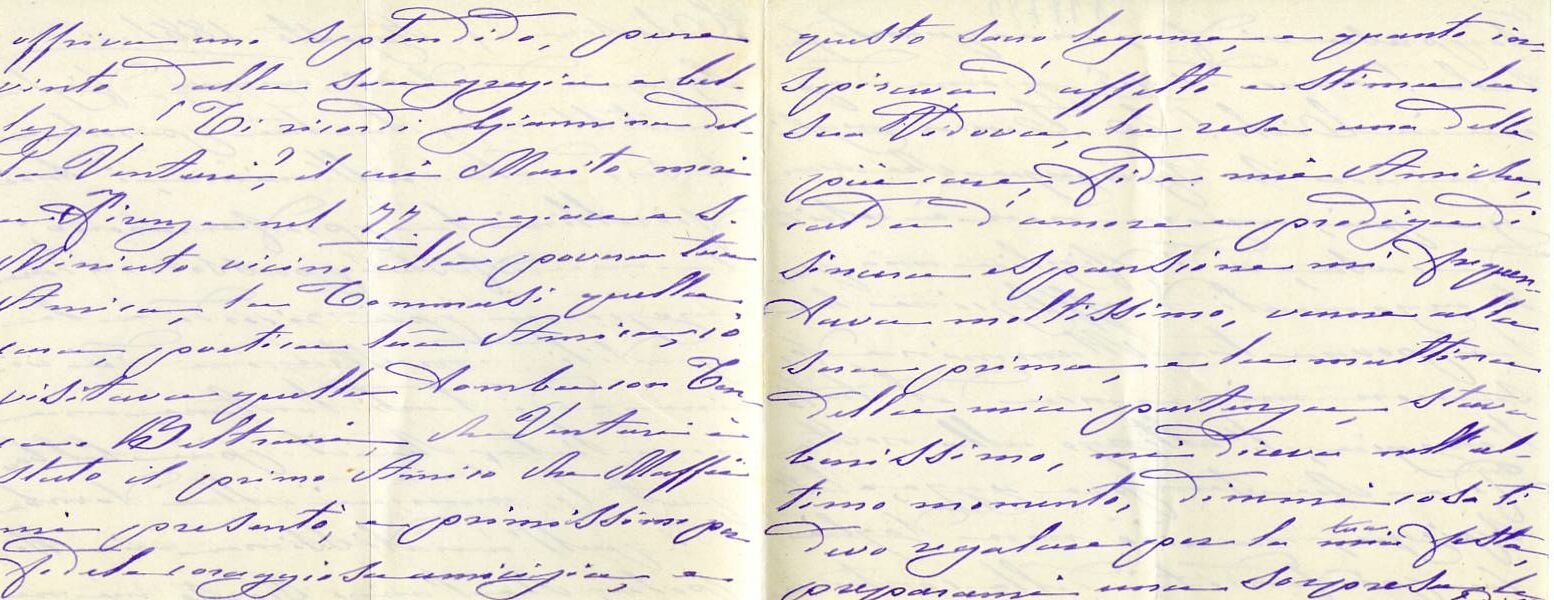 offriva uno splendido, pure
vinto dalla sua grazia e bel-
lezza! Ti ricordi Giannina del-
la Venturi? il cui Marito morì
a Firenze nel 77. e giace a S.
Miniato vicino alla povera tua
Amica, la Tommasi quella
cara, poetica tua Amica, io
visitava quella tomba con
Beltrami, che Venturi è
stato il primo Amico che Maffei
mi presentò, e primissimo per
fedele coraggiosa amicizia, e
questo sacro legame, e quanto in-
spirava d'affetto e stima la
sua Vedova, la rese una delle
più care, fide mie Amiche,
calda d'amore e prodiga di
sincera espansione mi frequen-
tava moltissimo, venne alla
sera prima, e la mattina
della mia partenza, stava
benissimo, mi diceva nell'ul-
timo momento, dimmi cosa ti
devo regalare per la mia tua festa,
preparami una sorpresa, la